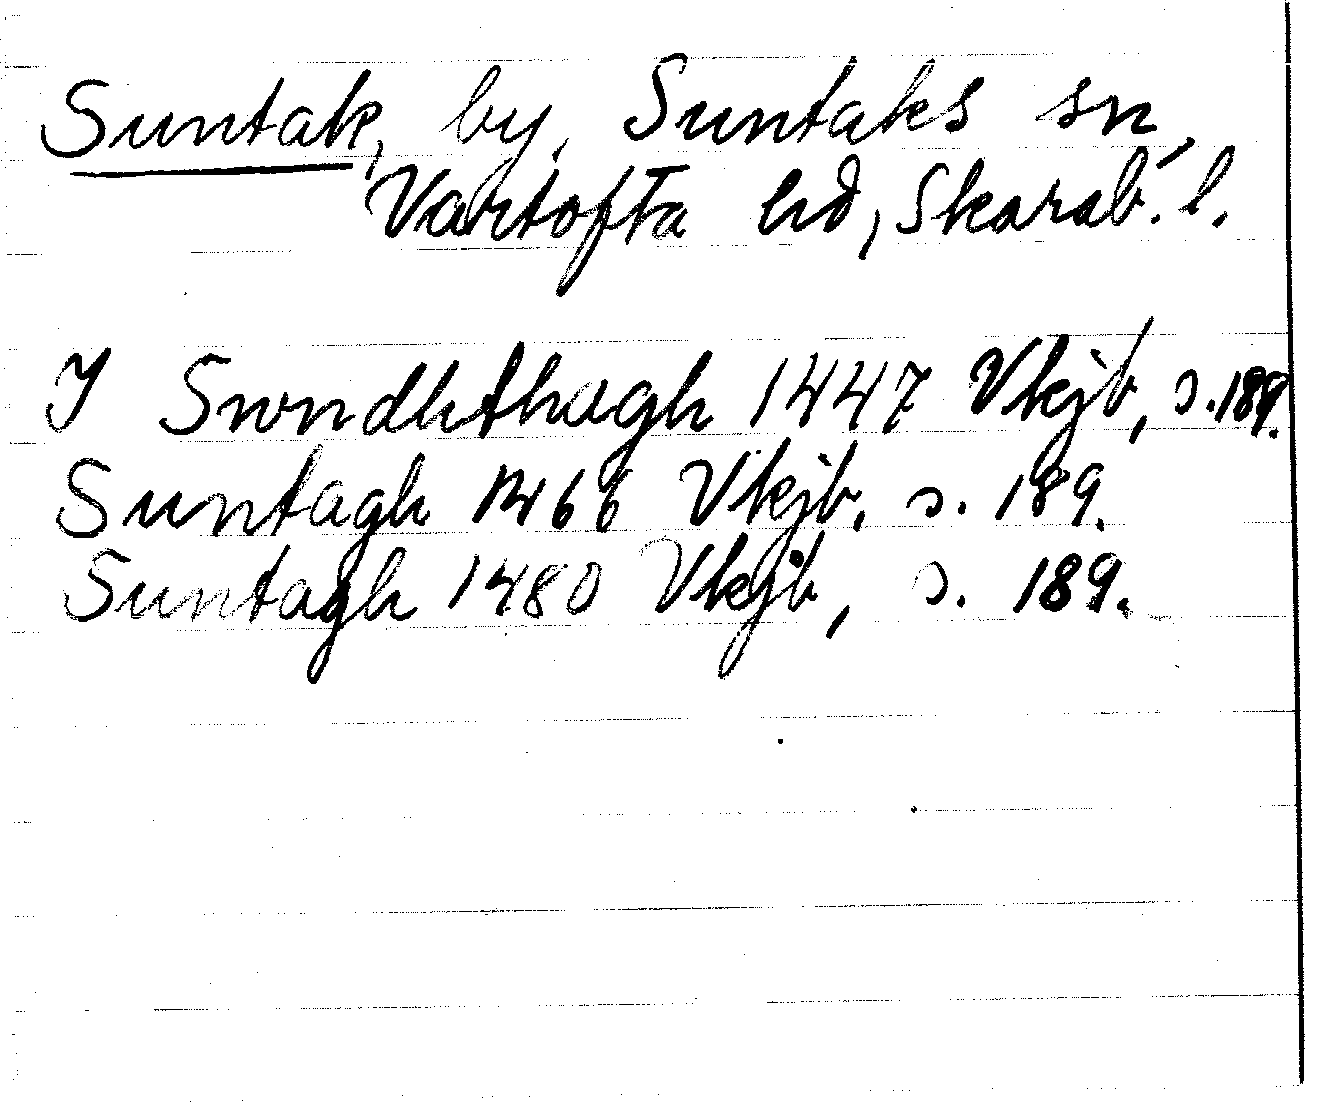 Suntak, by, Suntaks sn,
Vartofta hd, Skarab. l.
I Swndhthagh 1447 Vkjb, s. 189.
Suntagh 1466 Vkjb, s. 189.
Suntagh 1480 Vkjb, s. 189.